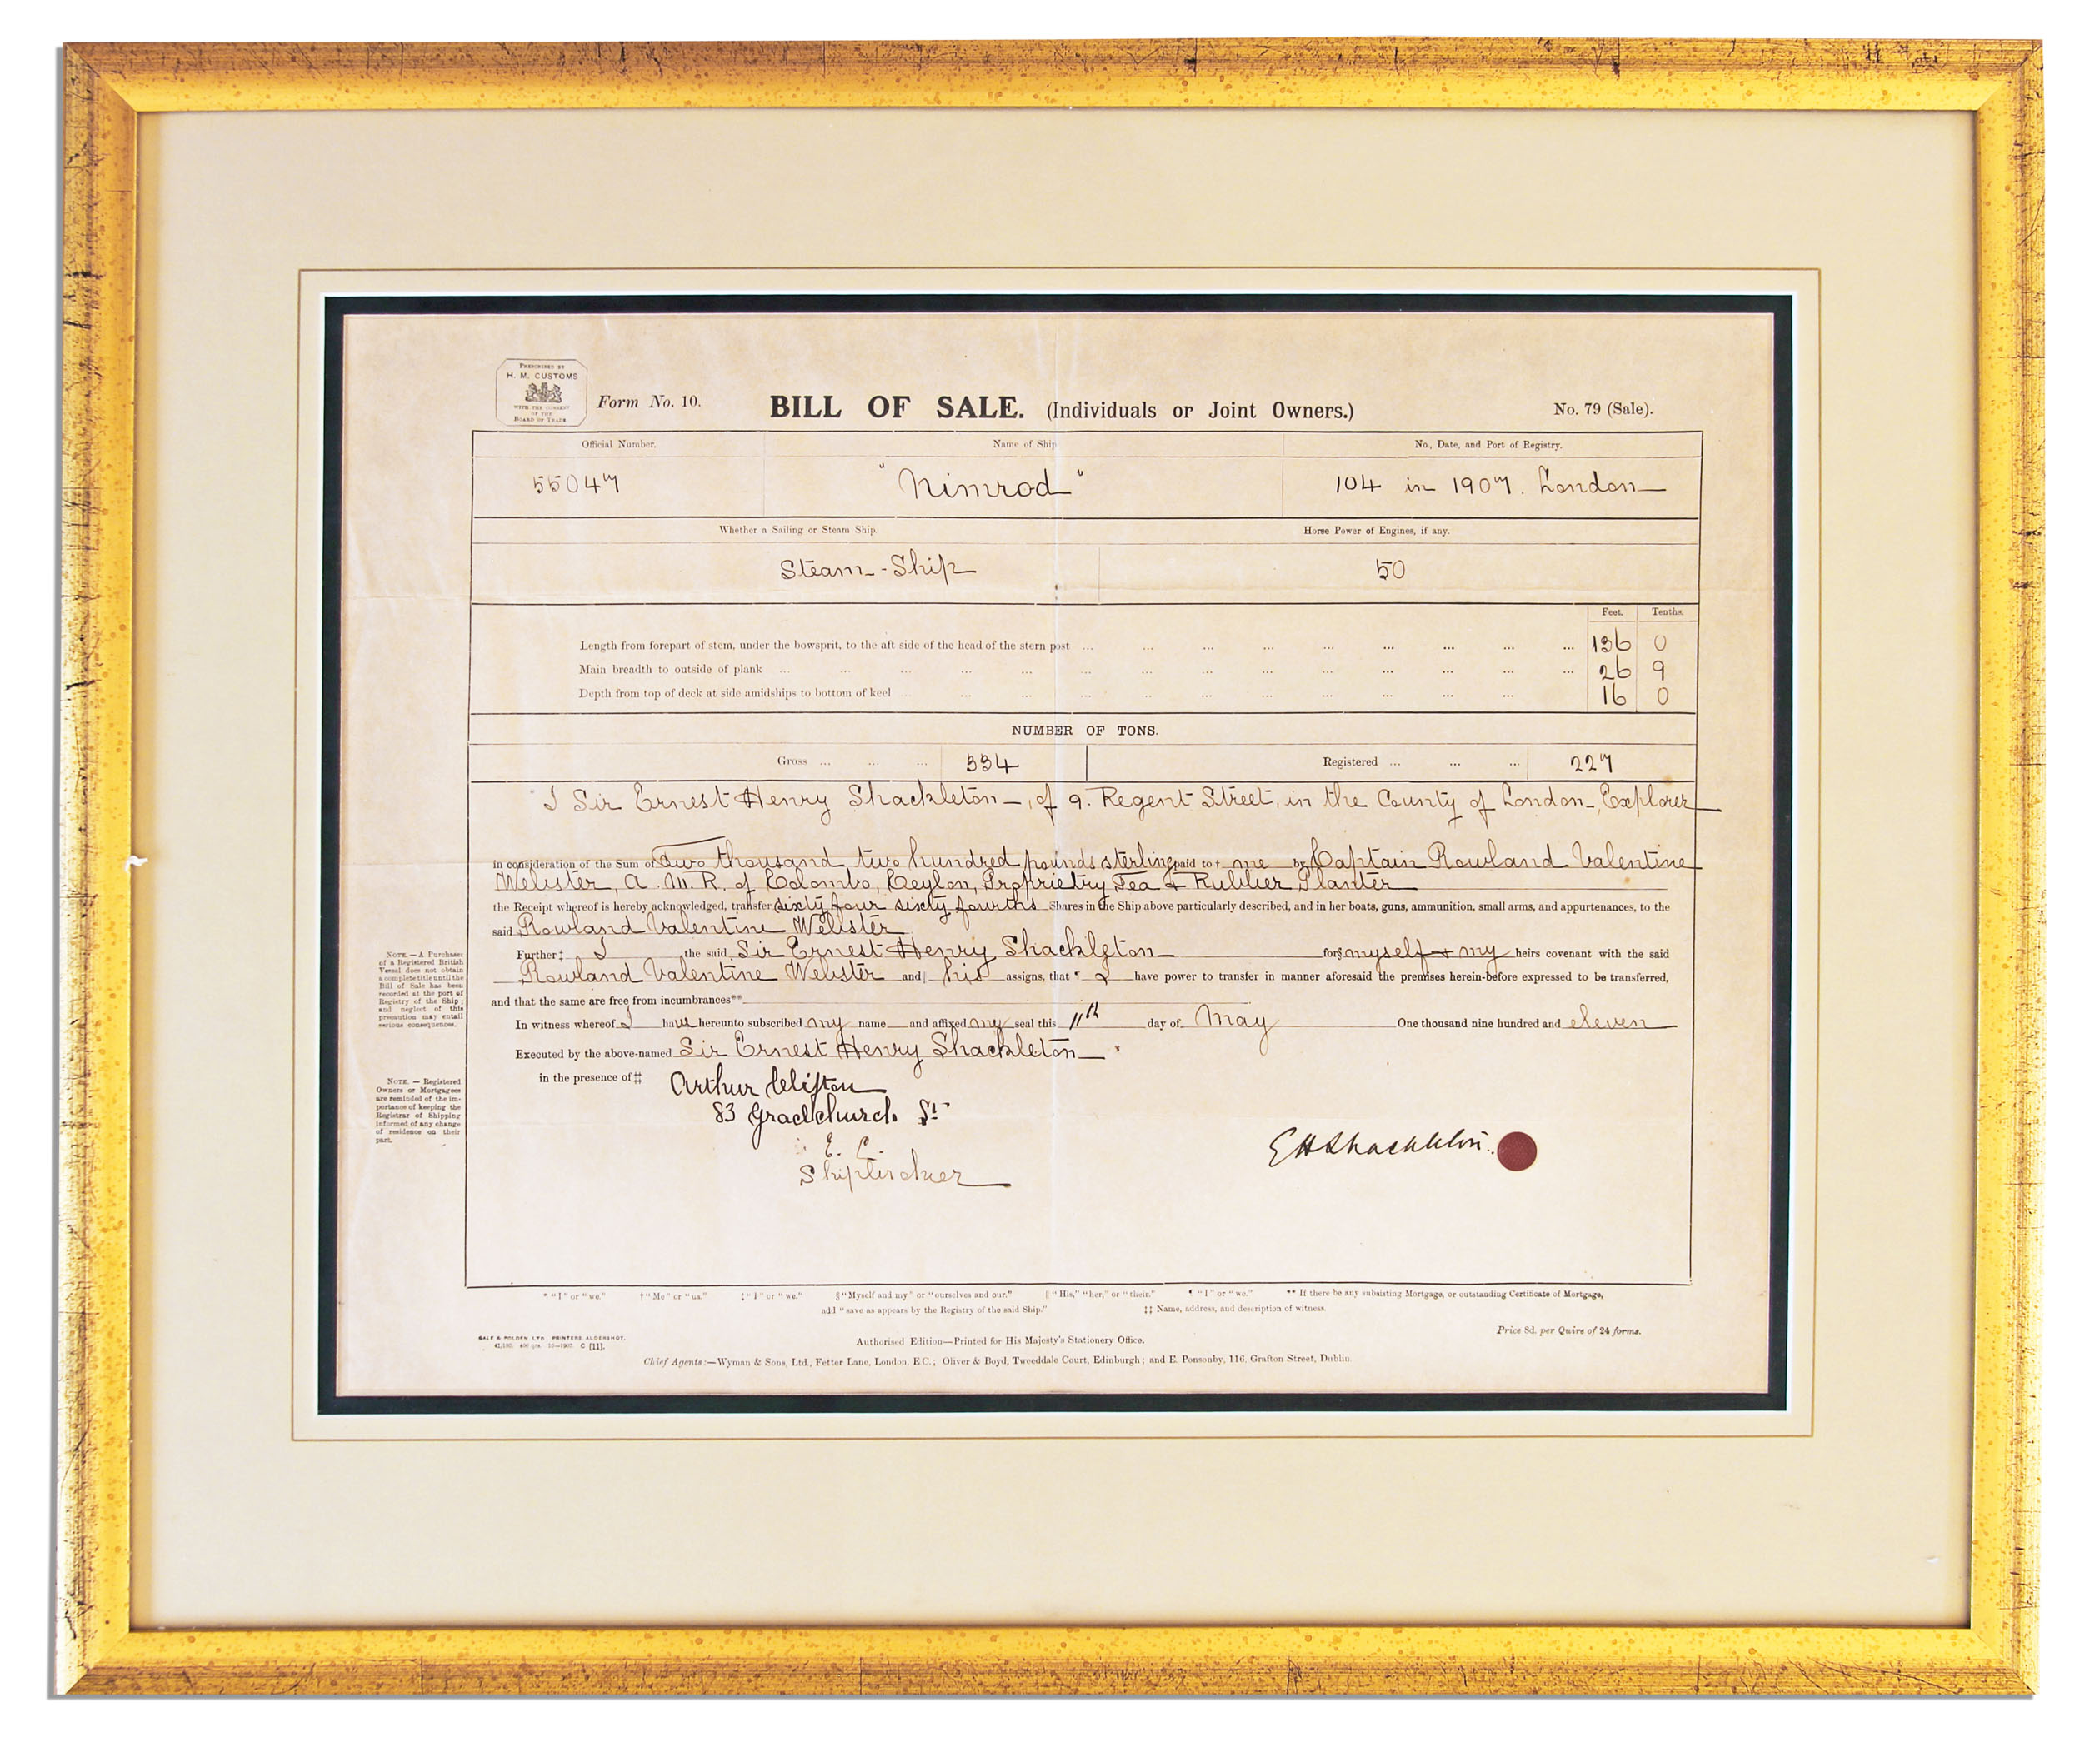 PRESCRIBED BY
H. M. CUSTOMS
WITH THE CONSENT
OF THE
BOARD OF TRADE
Form No. 10. BILL OF SALE. (Individuals or Joint Owners.) No. 79 (Sale).
Official Number. Name of Ship. No., Date, and Port of Registry.
55047 "Nimrod" 104 in 1907. London
Whether a Sailing or Steam Ship. Horse Power of Engines, if any.
Steam-Ship 50
Feet. Tenths.
Length from forepart of stem, under the bowsprit, to the aft side of the head of the stern post ... 136 0
Main breadth to outside of plank ... 26 9
Depth from top of deck at side amidships to bottom of keel ... 16 0
NUMBER OF TONS.
Gross ... 334 Registered ... 227
I Sir Ernest Henry Shackleton, of 9. Regent Street, in the County of London, Explorer
in consideration of the Sum of Two thousand two hundred pounds sterling paid to† me by Captain Rowland Valentine
Webster, A. M. R. of Colombo, Ceylon, Proprietry Tea & Rubber Planter
the Receipt whereof is hereby acknowledged, transfer sixty four sixty fourths Shares in the Ship above particularly described, and in her boats, guns, ammunition, small arms, and appurtenances, to the
said Rowland Valentine Webster
Further‡ I the said Sir Ernest Henry Shackleton for§ myself & my heirs covenant with the said
Rowland Valentine Webster and‖ his assigns, that¶ I have power to transfer in manner aforesaid the premises herein-before expressed to be transferred,
and that the same are free from incumbrances**
In witness whereof I have hereunto subscribed my name and affixed my seal this 11th day of May One thousand nine hundred and eleven
Executed by the above-named Sir Ernest Henry Shackleton
in the presence of‡‡ Arthur Clifton
83 Gracechurch St
E. C.
Shipbroker
EHShackleton.
NOTE.—A Purchaser
of a Registered British
Vessel does not obtain
a complete title until the
Bill of Sale has been
recorded at the port of
Registry of the Ship;
and neglect of this
precaution may entail
serious consequences.
NOTE. — Registered
Owners or Mortgagees
are reminded of the im-
portance of keeping the
Registrar of Shipping
informed of any change
of residence on their
part.
* "I" or "we." † "Me" or "us." ‡ "I" or "we." § "Myself and my" or "ourselves and our." ‖ "His," "her," or "their." ¶ "I" or "we." ** If there be any subsisting Mortgage, or outstanding Certificate of Mortgage,
add "save as appears by the Registry of the said Ship." ‡‡ Name, address, and description of witness.
GALE & POLDEN LTD PRINTERS. ALDERSHOT.
C [11].
Authorised Edition—Printed for His Majesty's Stationery Office.
Price 8d. per Quire of 24 forms.
Chief Agents:—Wyman & Sons, Ltd., Fetter Lane, London, E.C.; Oliver & Boyd, Tweeddale Court, Edinburgh; and E. Ponsonby, 116, Grafton Street, Dublin.